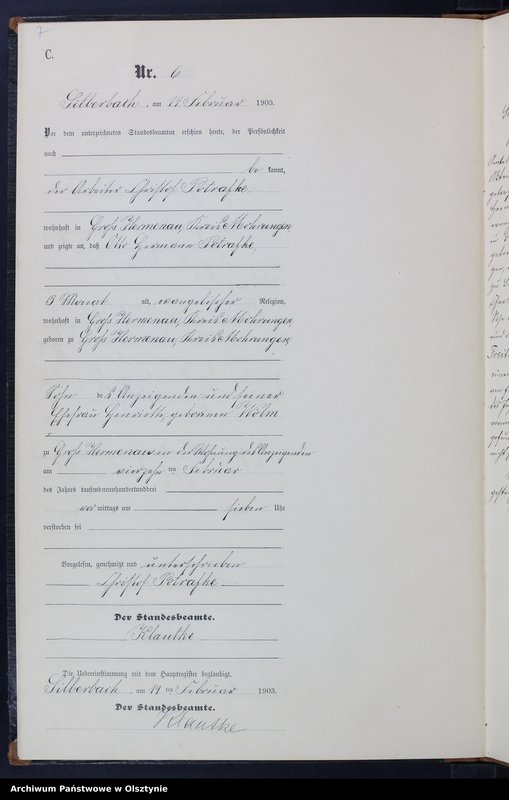 7
C.
Nr. 6
Silberbach, am 14 Februar 1903.
Vor dem unterzeichneten Standesbeamten erschien heute, der Persönlichkeit
nach
be kannt,
der Arbeiter Christof Potrafke,
wohnhaft in Groß Hermenau, Kreis Mohrungen
und zeigte an, daß Otto Hermann Potrafke,
3 Monat alt, evangelischer Religion,
wohnhaft in Groß Hermenau, Kreis Mohrungen
geboren zu Groß Hermenau, Kreis Mohrungen
Sohn des Anzeigenden und seiner
Ehefrau Henriette, geborenen
zu Groß Hermenau in der Wohnung des Anzeigenden
am vierzehn ten Februar
des Jahres tausendneunhundertunddrei
vor mittags um sieben Uhr
verstorben sei
Vorgelesen, genehmigt und unterschrieben
Christof Potrafke
Der Standesbeamte.
Klautke
Die Uebereinstimmung mit dem Hauptregister beglaubigt.
Silberbach, am 14 ten Februar 1903.
Der Standesbeamte.
Klautke
Archiwum Państwowe w Olsztynie